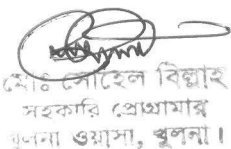 মোঃ সোহেল বিল্লাহ
সহকারি প্রোগ্রামার
খুলনা ওয়াসা, খুলনা।